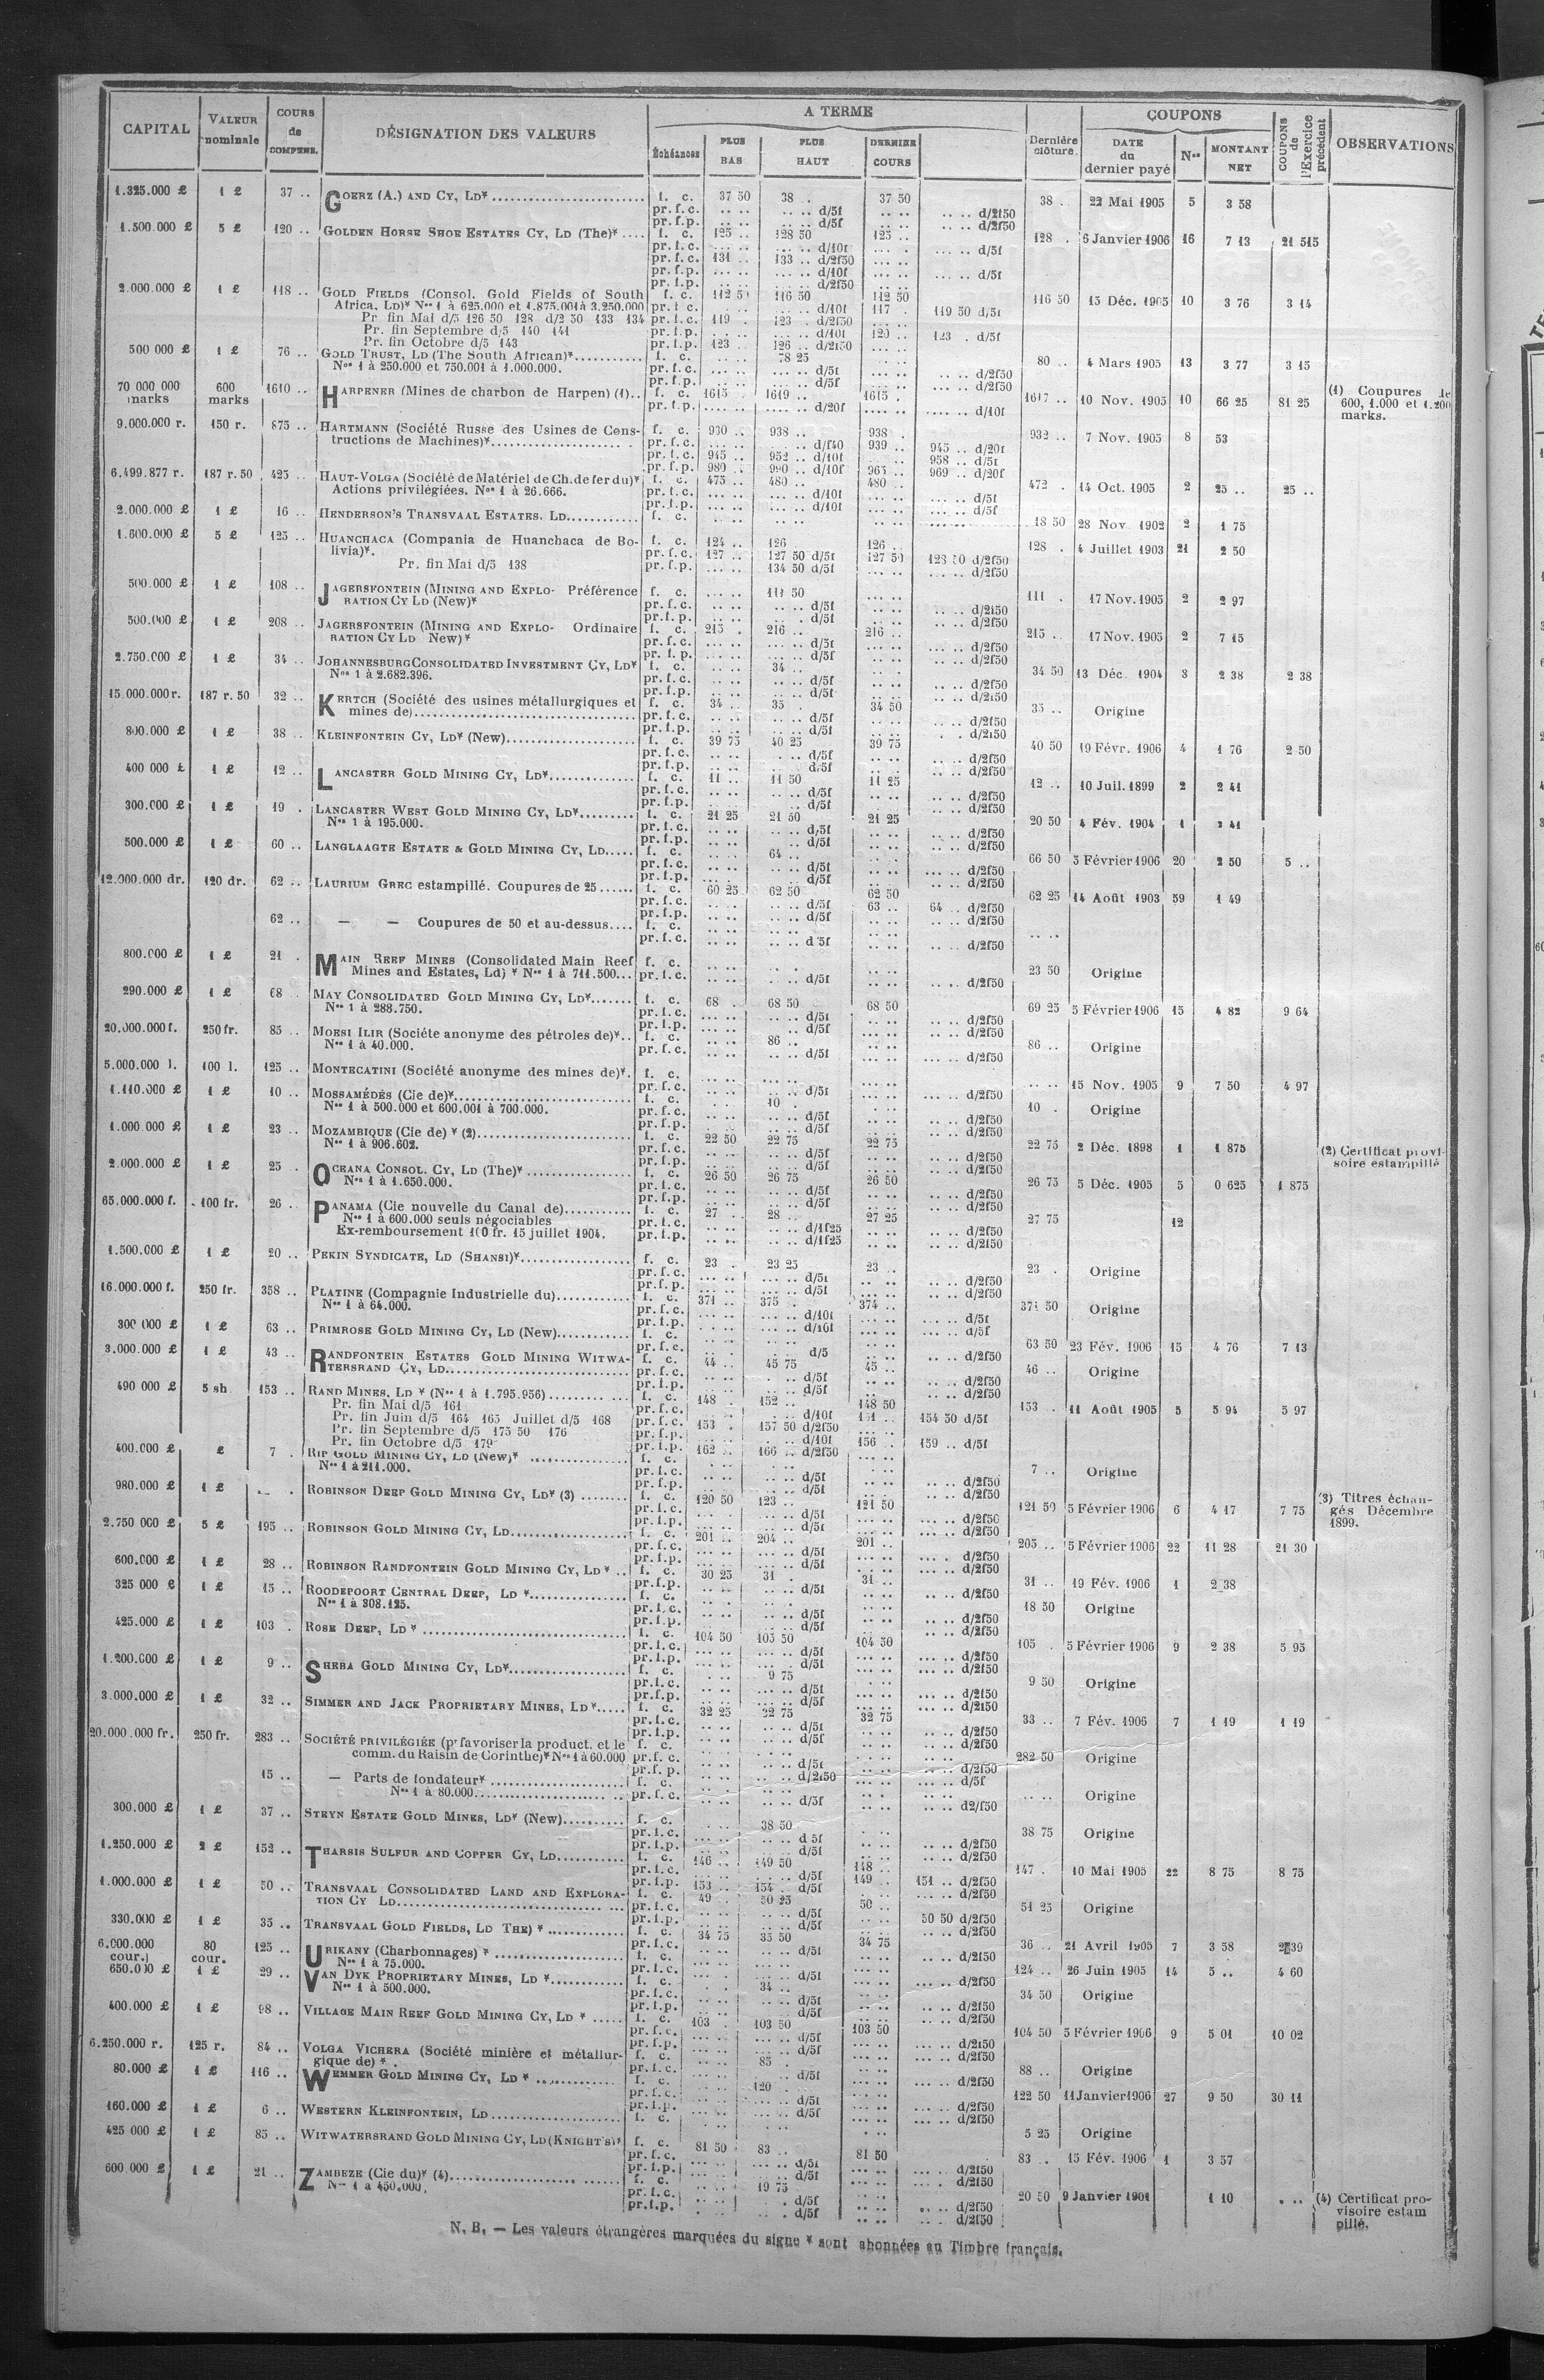 CAPITAL | VALEUR nominale | COURS de COMPENS. | DÉSIGNATION DES VALEURS | A TERME | Dernière clôture. | COUPONS | COUPONS de l'Exercice précédent | OBSERVATIONS
Échéances | PLUS BAS | PLUS HAUT | DERNIER COURS | DATE du dernier payé | Nos | MONTANT NET
1.325.000 £ 1 £ 37 .. GOERZ (A.) AND CY, LD* f. c. 37 50 38 .. 37 50 38 .. 22 Mai 1905 5 3 58
pr. f. c. .. .. .. .. d/5f .. .. .. .. d/2f50
pr. f. p. .. .. .. .. d/5f .. .. .. .. d/2f50
1.500.000 £ 5 £ 120 .. GOLDEN HORSE SHOE ESTATES CY, LD (The)* f. c. 125 .. 128 50 125 .. 128 . 6 Janvier 1906 16 7 13 21 515
pr. f. c. ... .. ... .. d/10f ... . ... .. d/5f
pr. f. c. 131 .. 133 .. d/2f50
pr. f. p. ... .. ... .. d/10f ... .. ... .. d/5f
pr. f. p. ... .. ... .. d/2f50
2.000.000 £ 1 £ 118 .. GOLD FIELDS (Consol. Gold Fields of South f. c. 112 50 116 50 112 50 116 50 15 Déc. 1905 10 3 76 3 14
Africa, LD)* Nos 1 à 625.000 et 1.875.001 à 3.250.000 pr. f. c. ... .. d/10f 117 . 119 50 d/5f
Pr. fin Mai d/5 126 50 128 d/2 50 133 134 pr. f. c. 119 . 123 . d/2f50
Pr. fin Septembre d/5 140 141 pr. f. p. d/10f 120 .. 123 . d/5f
Pr. fin Octobre d/5 143 pr. f. p. 123 .. 126 .. d/2f50
500 000 £ 1 £ 76 .. GOLD TRUST, LD (The South African)* f. c. 78 25 80 .. 4 Mars 1905 13 3 77 3 15
Nos 1 à 250.000 et 750.001 à 1.000.000. pr. f. c. d/5f d/2f50
pr. f. p. d/5f d/2f50
70 000 000 marks 600 marks 1610 .. HARPENER (Mines de charbon de Harpen) (1).. f. c. 1615 . 1619 .. 1615 . 1617 .. 10 Nov. 1905 10 66 25 81 25 (1) Coupures de 600, 1.000 et 1.200 marks.
pr. f. p. d/20f d/10f
9.000.000 r. 150 r. 875 .. HARTMANN (Société Russe des Usines de Cons- f. c. 930 .. 938 .. 938 . 932 .. 7 Nov. 1905 8 53
tructions de Machines)* pr. f. c. d/f40 939 .. 945 .. d/20f
pr. f. c. 945 .. 952 .. d/10f 958 .. d/5f
pr. f. p. 980 .. 990 .. d/10f 965 .. 969 .. d/20f
6.499.877 r. 187 r. 50 425 .. HAUT-VOLGA (Société de Matériel de Ch. de fer du)* f. c. 475 .. 480 .. 480 .. 472 . 14 Oct. 1905 2 25 .. 25 ..
Actions privilégiées. Nos 1 à 26.666. pr. f. c. d/10f d/5f
pr. f. p. d/10f d/5f
2.000.000 £ 1 £ 16 .. HENDERSON'S TRANSVAAL ESTATES, LD f. c. 18 50 28 Nov 1902 2 1 75
1.600.000 £ 5 £ 125 .. HUANCHACA (Compania de Huanchaca de Bo- f. c. 124 .. 126 .. 126 .. 128 . 4 Juillet 1903 21 2 50
livia)*. pr. f. c. 127 .. 127 50 d/5f 127 50 128 50 d/2f50
Pr. fin Mai d/5 138 pr. f. p. 134 50 d/5f d/2f50
500.000 £ 1 £ 108 .. JAGERSFONTEIN (MINING AND EXPLO- Préférence f. c. 111 50 111 . 17 Nov. 1905 2 2 97
RATION CY LD (New)* pr. f. c. d/5f d/2f50
pr. f. p. d/5f d/2f50
500.000 £ 1 £ 208 .. JAGERSFONTEIN (MINING AND EXPLO- Ordinaire f. c. 215 . 216 .. 216 .. 215 .. 17 Nov. 1905 2 7 15
RATION CY LD New)* pr. f. c. d/5f d/2f50
pr. f. p. d/5f d/2f50
2.750.000 £ 1 £ 34 .. JOHANNESBURG CONSOLIDATED INVESTMENT CY, LD* f. c. 34 .. 34 50 13 Déc. 1904 3 2 38 2 38
Nos 1 à 2.682.396. pr. f. c. d/5f d/2f50
pr. f. p. d/5f d/2f50
15.000.000 r. 187 r. 50 32 .. KERTCH (Société des usines métallurgiques et f. c. 34 .. 35 . 34 50 35 .. Origine
mines de) pr. f. c. d/5f d/2f50
pr. f. p. d/5f d/2f50
800.000 £ 1 £ 38 .. KLEINFONTEIN CY, LD* (New) f. c. 39 75 40 25 39 75 40 50 19 Févr. 1906 4 1 76 2 50
pr. f. c. d/5f d/2f50
pr. f. p. d/5f d/2f50
400 000 £ 1 £ 12 .. LANCASTER GOLD MINING CY, LD* f. c. 11 .. 11 50 11 25 12 .. 10 Juil. 1899 2 2 41
pr. f. c. d/5f d/2f50
pr. f. p. d/5f d/2f50
300.000 £ 1 £ 19 . LANCASTER WEST GOLD MINING CY, LD* f. c. 21 25 21 50 21 25 20 50 4 Fév. 1904 1 41
Nos 1 à 195.000. pr. f. c. d/5f d/2f50
pr. f. p. d/5f d/2f50
500.000 £ 1 £ 60 .. LANGLAAGTE ESTATE & GOLD MINING CY, LD f. c. 64 .. 66 50 3 Février 1906 20 2 50 5 ..
pr. f. c. d/5f d/2f50
pr. f. p. d/5f d/2f50
12.000.000 dr. 120 dr. 62 .. LAURIUM GREC estampillé. Coupures de 25 f. c. 60 25 62 50 62 50 62 25 14 Août 1903 59 1 49
pr. f. c. d/5f 63 .. 64 .. d/2f50
pr. f. p. d/5f d/2f50
62 .. — — Coupures de 50 et au-dessus f. c.
pr. f. c. d 5f d/2f50
800.000 £ 1 £ 21 . MAIN REEF MINES (Consolidated Main Reef f. c. 23 50 Origine
Mines and Estates, Ld) * Nos 1 à 711.500 pr. f. c. d/5f d/2f50
290.000 £ 1 £ 68 MAY CONSOLIDATED GOLD MINING CY, LD* f. c. 68 . 68 50 68 50 69 25 5 Février 1906 15 4 82 9 64
Nos 1 à 288.750. pr. f. c. d/5f d/2f50
pr. f. p. d/5f d/2f50
20.000.000 f. 250 fr. 85 .. MORSI ILIR (Sociéte anonyme des pétroles de)*.. f. c. 86 .. 86 .. Origine
Nos 1 à 40.000. pr. f. c. d/5f d/2f50
5.000.000 l. 100 l. 125 .. MONTECATINI (Société anonyme des mines de)*. f. c. 15 Nov. 1905 9 7 50 4 97
pr. f. c. d/5f d/2f50
1.110.000 £ 1 £ 10 .. MOSSAMÉDÈS (Cie de)* f. c. 10 . 10 . Origine
Nos 1 à 500.000 et 600.001 à 700.000. pr. f. c. d/5f d/2f50
pr. f. p. d/5f d/2f50
1.000.000 £ 1 £ 23 .. MOZAMBIQUE (Cie de) * (2) f. c. 22 50 22 75 22 75 22 75 2 Déc. 1898 1 1 875 (2) Certificat provisoire estampillé
Nos 1 à 906.602. pr. f. c. d/5f d/2f50
pr. f. p. d/5f d/2f50
2.000.000 £ 1 £ 25 .. OCEANA CONSOL. CY, LD (The)* f. c. 26 50 26 75 26 50 26 75 5 Déc. 1905 5 0 625 1 875
Nos 1 à 1.650.000. pr. f. c. d/5f d/2f50
pr. f. p. d/5f d/2f50
65.000.000 f. 100 fr. 26 . PANAMA (Cie nouvelle du Canal de) f. c. 27 .. 28 .. 27 25 27 75 12
Nos 1 à 600.000 seuls négociables pr. f. c. d/1f25 d/2f50
Ex-remboursement 100 fr. 15 juillet 1904. pr. f. p. d/1f25 d/2f50
1.500.000 £ 1 £ 20 .. PEKIN SYNDICATE, LD (SHANSI)* f. c. 23 . 23 25 23 .. 23 . Origine
pr. f. c. d/5f d/2f50
pr. f. p. d/5f d/2f50
16.000.000 f. 250 fr. 358 .. PLATINE (Compagnie Industrielle du) f. c. 371 .. 375 . 374 .. 371 50 Origine
Nos 1 à 64.000. pr. f. c. d/10f d/5f
pr. f. p. d/10f d/5f
300 000 £ 1 £ 63 .. PRIMROSE GOLD MINING CY, LD (New) f. c. 63 50 23 Fév. 1906 15 4 76 7 13
pr. f. c. d/5 d/2f50
3.000.000 £ 1 £ 43 .. RANDFONTEIN ESTATES GOLD MINING WITWA- f. c. 44 .. 45 75 45 .. 46 .. Origine
TERSRAND CY, LD pr. f. c. d/5f d/2f50
pr. f. p. d/5f d/2f50
490 000 £ 5 sh 153 .. RAND MINES, LD * (Nos 1 à 1.795.956) f. c. 148 . 152 .. 148 50 153 .. 11 Août 1905 5 5 94 5 97
Pr. fin Mai d/5 161 pr. f. c. d/10f 151 .. 154 50 d/5f
Pr. fin Juin d/5 164 165 Juillet d/5 168 pr. f. c. 153 . 157 50 d/2f50
Pr. fin Septembre d/5 175 50 176 pr. f. p. d/10f 156 .. 159 .. d/5f
Pr. fin Octobre d/5 179 pr. f. p. 162 .. 166 .. d/2f50
400.000 £ £ 7 . RIP GOLD MINING CY, LD (New)* f. c. 7 .. Origine
Nos 1 à 211.000. pr. f. c. d/5f d/2f50
pr. f. p. d/5f d/2f50
980.000 £ 1 £ ROBINSON DEEP GOLD MINING CY, LD* (3) f. c. 120 50 123 .. 121 50 121 50 5 Février 1906 6 4 17 7 75 (3) Titres échangés Décembre 1899.
pr. f. c. d/5f d/2f50
pr. f. p. d/5f d/2f50
2.750 000 £ 5 £ 195 .. ROBINSON GOLD MINING CY, LD f. c. 201 .. 204 .. 201 .. 205 .. 5 Février 1906 22 11 28 21 30
pr. f. c. d/5f d/2f50
pr. f. p. d/5f d/2f50
600.000 £ 1 £ 28 .. ROBINSON RANDFONTEIN GOLD MINING CY, LD * .. f. c. 30 25 31 . 31 .. 31 .. 19 Fév. 1906 1 2 38
pr. f. p. d/5f d/2f50
325 000 £ 1 £ 15 .. ROODEPOORT CENTRAL DEEP, LD * f. c. 18 50 Origine
Nos 1 à 308.125. pr. f. c. d/5f d/2f50
pr. f. p. d/5f d/2f50
425.000 £ 1 £ 103 . ROSE DEEP, LD * f. c. 104 50 105 50 104 50 105 . 5 Février 1906 9 2 38 5 95
pr. f. c. d/5f d/2f50
pr. f. p. d/5f d/2f50
1.200.000 £ 1 £ 9 .. SHEBA GOLD MINING CY, LD* f. c. 9 75 9 50 Origine
pr. f. c. d/5f d/2f50
pr. f. p. d/5f d/2f50
3.000.000 £ 1 £ 32 .. SIMMER AND JACK PROPRIETARY MINES, LD* f. c. 32 25 32 75 32 75 33 .. 7 Fév. 1906 7 1 19 1 19
pr. f. c. d/5f d/2f50
pr. f. p. d/5f d/2f50
20.000.000 fr. 250 fr. 283 .. SOCIÉTÉ PRIVILÉGIÉE (pr favoriser la product. et le f. c. 282 50 Origine
comm. du Raisin de Corinthe)* Nos 1 à 60.000 pr. f. c. d/5f d/2f50
pr. f. p. d/2f50 d/5f
15 .. — Parts de fondateur* f. c. Origine
Nos 1 à 80.000 pr. f. c. d/5f d2/f50
300.000 £ 1 £ 37 .. STEYN ESTATE GOLD MINES, LD* (New) f. c. 38 50 38 75 Origine
pr. f. c. d 5f d/2f50
pr. f. p. d/5f d/2f50
1.250.000 £ 2 £ 152 .. THARSIS SULFUR AND COPPER CY, LD f. c. 146 .. 149 50 148 .. 147 . 10 Mai 1905 22 8 75 8 75
pr. f. c. d/5f 149 .. 151 .. d/2f50
pr. f. p. 153 .. 154 . d/5f d/2f50
1.000.000 £ 1 £ 50 .. TRANSVAAL CONSOLIDATED LAND AND EXPLORA- f. c. 49 .. 50 25 50 .. 51 25 Origine
TION CY LD pr. f. c. d/5f 50 50 d/2f50
pr. f. p. d/5f d/2f50
330.000 £ 1 £ 35 .. TRANSVAAL GOLD FIELDS, LD THE) * f. c. 34 75 35 50 34 75 36 .. 21 Avril 1905 7 3 58 2 39
pr. f. c. d/5f d/2f50
6.000.000 cour. 80 cour. 125 .. URIKANY (Charbonnages) * f. c. 124 .. 26 Juin 1905 14 5 .. 4 60
Nos 1 à 75.000. pr. f. c. d/5f d/2f50
650.000 £ 1 £ 29 .. VAN DYK PROPRIETARY MINES, LD * f. c. 34 .. 34 50 Origine
Nos 1 à 500.000. pr. f. c. d/5f d/2f50
pr. f. p. d/5f d/2f50
400.000 £ 1 £ 98 .. VILLAGE MAIN REEF GOLD MINING CY, LD * f. c. 103 . 103 50 103 50 104 50 5 Février 1906 9 5 01 10 02
pr. f. c. d/5f d/2f50
pr. f. p. d/5f d/2f50
6.250.000 r. 125 r. 84 .. VOLGA VICHERA (Société minière et métallur- f. c. 85 . 88 .. Origine
gique de) * . pr. f. c. d/5f d/2f50
80.000 £ 1 £ 116 .. WEMMER GOLD MINING CY, LD * f. c. 120 . 122 50 11 Janvier 1906 27 9 50 30 11
pr. f. c. d/5f d/2f50
pr. f. p. d/5f d/2f50
160.000 £ 1 £ 6 .. WESTERN KLEINFONTEIN, LD f. c. 5 25 Origine
425 000 £ 1 £ 85 .. WITWATERSRAND GOLD MINING CY, LD (KNIGHT'S)* f. c. 81 50 83 .. 81 50 83 .. 15 Fév. 1906 1 3 57
pr. f. c. d/5f d/2f50
pr. f. p. d/5f d/2f50
600.000 £ 1 £ 21 .. ZAMBEZE (Cie du)* (4) f. c. 19 75 20 50 9 Janvier 1901 1 10 (4) Certificat provisoire estam pillé.
Nos 1 à 450.000. pr. f. c. d/5f d/2f50
pr. f. p. d/5f d/2f50
N. B. — Les valeurs étrangères marquées du signe * sont abonnées au Timbre français.